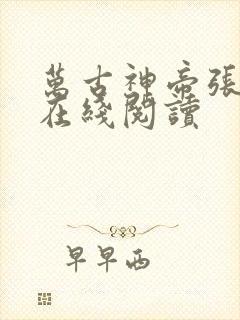 萬古神帝張
在綫閱讀
早早西